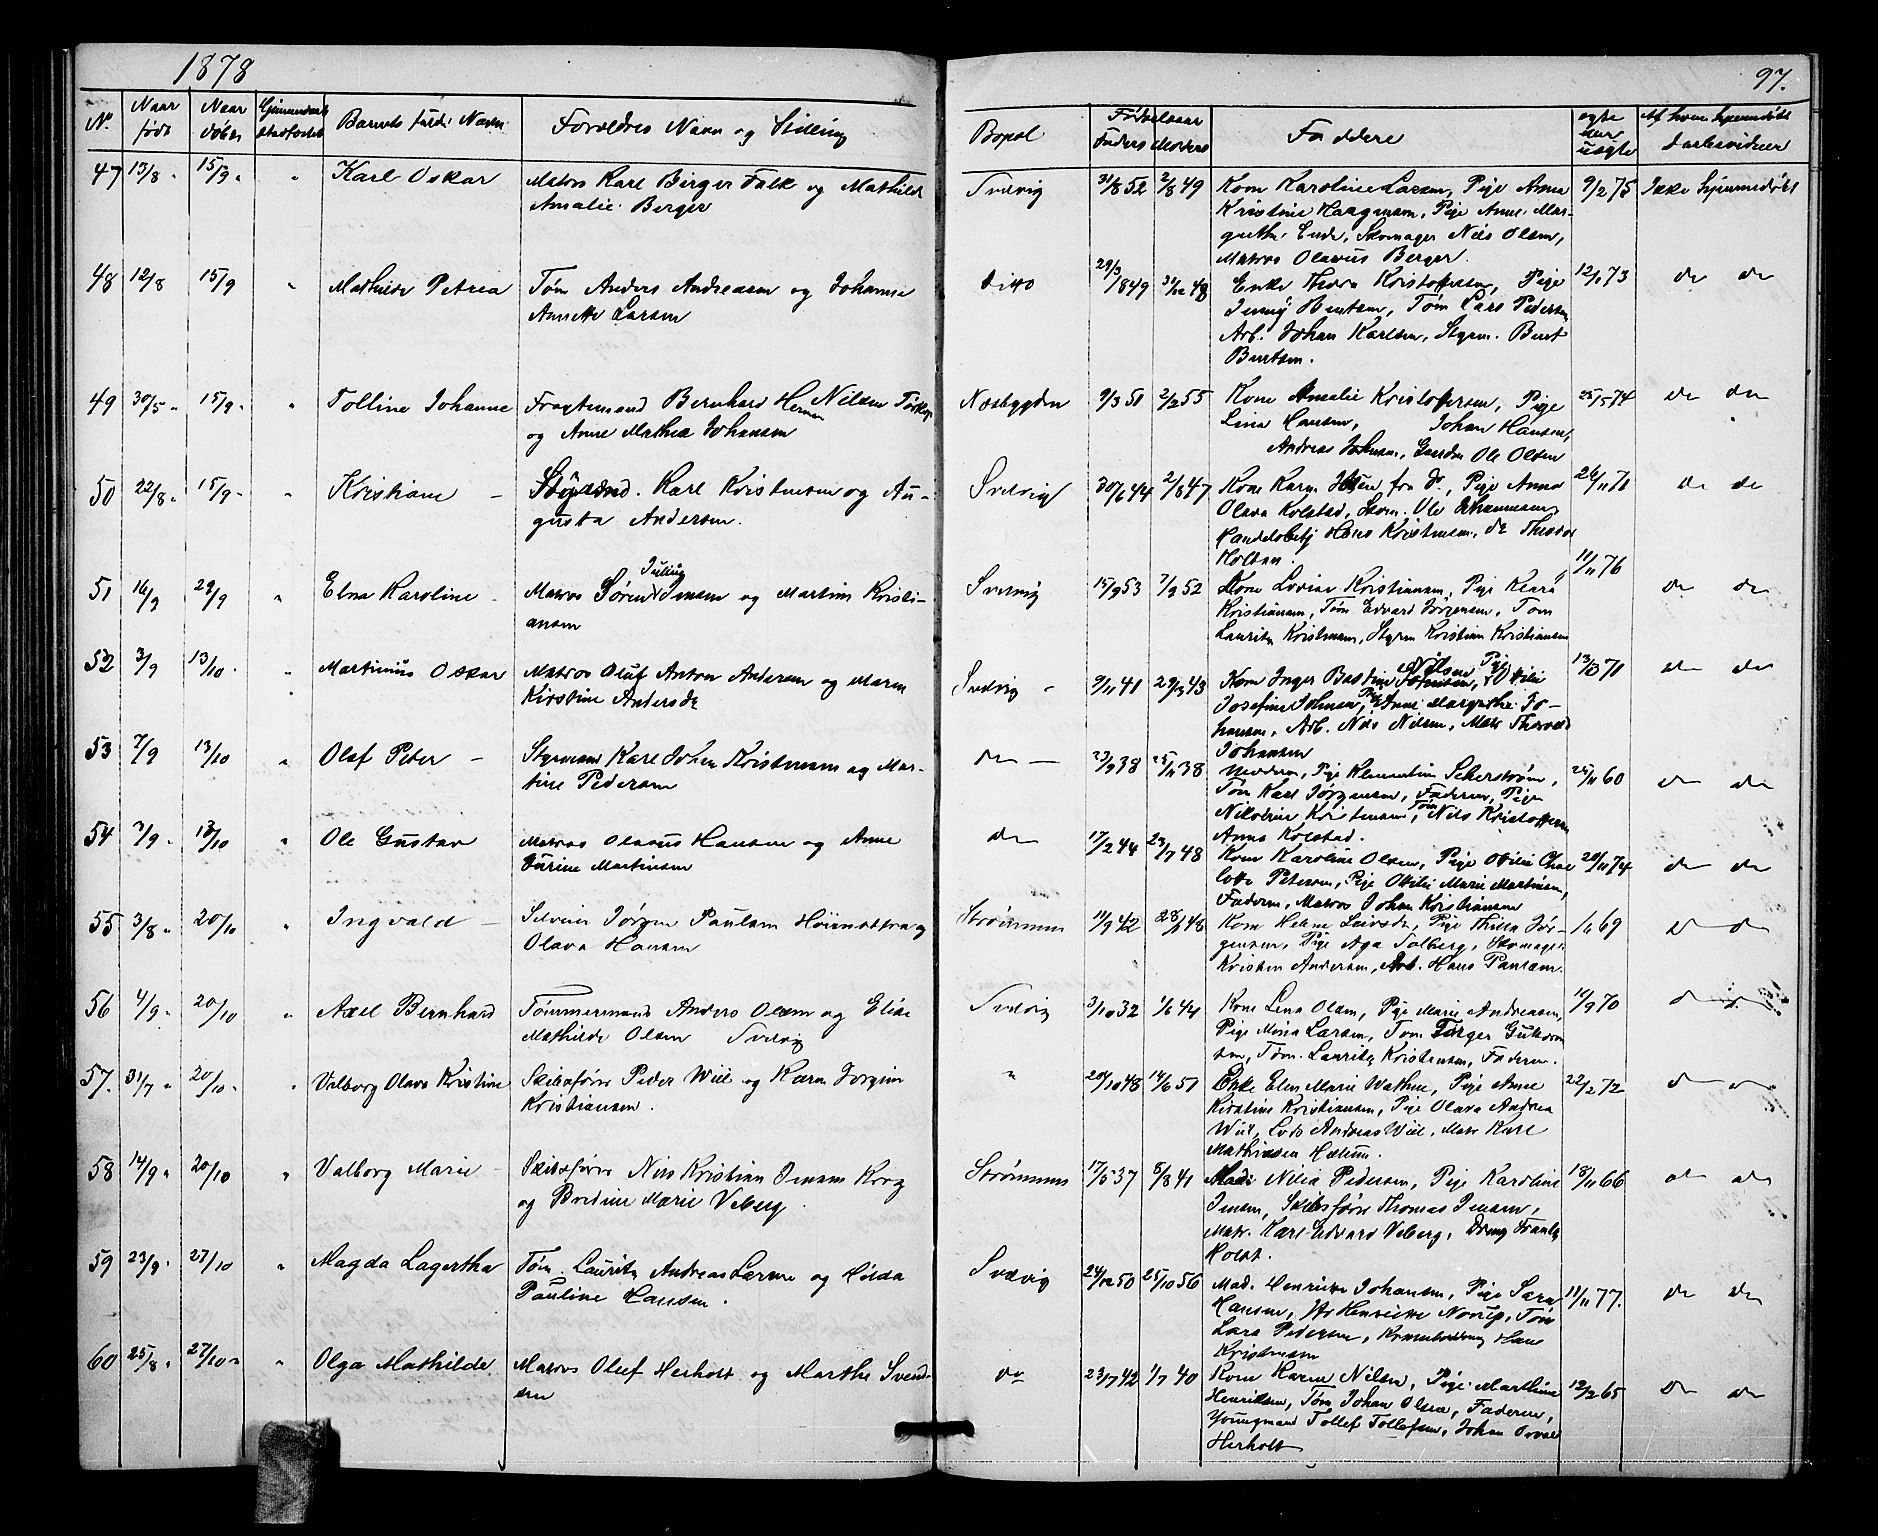 1878
97.
No. Naar født Naar døbt Barnets fulde Navn Forældres Navn og Stilling Bopæl Fødselsaar Faders Moders Faddere ægte eller uægte Af hvem hjemmedøbt
47 13/8 15/9 " Karl Oskar Matros Karl Birger Falk og Mathilde Svelvig 31/8 52 2/8 49 Kone Karoline Larsen, Pige Anna 9/2 75 Ikke hjemmedøbt
Amalie Berger Kristine Haagensen, Pige Anne Mar-
grethe Ende, Skomager Nils Olsen,
Matros Olavus Berger.
48 12/8 15/9 " Mathilde Petrea Tøm Anders Andreasen og Johanne ditto 29/3 1849 31/12 48 Enke Thora Kristoffersen, Pige 12/1 73 do do
Annette Larsen Jenny Bentsen, Tøm Lars Pedersen
Arb. Johan Karlsen, Styrm. Bent
Bentsen.
49 30/5 15/9 " Tolline Johanne Fragtemand Bernhard Herman Nilsen Næsbygden 9/3 51 2/2 55 Kone Amalie Kristoffersen, Pige 25/5 74 do do
og Anne Mathea Johansen Lina Hansen, Johan Hansen,
Andreas Johnsen, Gaardm Ole Olsen
50 22/8 15/9 " Kristiane – Styrmand. Karl Kristensen og Au- Svelvig 30/6 44 2/8 47 Kone Karen Olsen fra D., Pige Anna 26/11 71 do do
gusta Andersen. Olava Kolstad, Skom. Ole Johannesen,
Handelsbetj Hans Kristensen, do Theodor
Holtsen.
51 16/3 29/9 " Elna Karoline – Matros Søren Julius Jensen og Martine Kristi- Svelvig 15/9 53 7/9 52 Kone Lovise Kristiansen, Pige Klara 11/11 76 do do
ansen Kristiansen, Tøm Edvard Jørgensen, Tøm
Lauritz Kristensen, Styrm Kristian Kristiansen
52 3/9 13/10 " Martinius Oskar Matros Oluf Anton Andersen og Maren Svelvig – 9/11 41 29/3 43 Kone Inger Bastine Nilsen, Pige Otilie 13/3 71 do do
Kirstine Andersdr Josefine Johnsen, Pige Anne Margrethe Jo-
hansen, Arb. Nils Nilsen, Matr Thorvald
Johansen
53 7/9 13/10 " Olaf Peter – Styrmand Karl Johan Kristensen og Mar- do – 23/9 38 25/11 38 Moderen, Pige Klementine Sekerstrøm, 25/11 60 do do
tine Pedersen Tøm Karl Jørgensen, Faderen, Pige
Nikoline Kristensen, Tøm Nils Kristoffersen
Anna Kolstad.
54 7/9 13/10 " Ole Gustav Matros Olavus Hansen og Anne do 17/2 44 29/7 48 Kone Karoline Olsen, Pige Otilie Char 20/11 74 do do
Turine Martinsen lotte Petersen, Pige Otilie Marie Martinsen,
Faderen, Matros Johan Kristiansen
55 3/8 20/10 " Ingvald – Selveier Jørgen Paulsen og Strømmen 11/9 42 28/1 48 Kone Helene Leirsdr, Pige Thilla Jør- 1/6 69 do do
Olava Hansen gensen, Pige Aga Tolberg, Skomager
Kristen Andersen, Arb. Hans Paulsen.
56 4/9 20/10 " Axel Bernhard Tømmermand Anders Olsen og Elise Svelvig 3/10 32 1/6 44 Kone Lina Olsen, Pige Marie Andreasen, 14/9 70 do do
Mathilde Olsen Svelvig Pige Mina Larsen, Tøm Torger Guttorm
sen, Tøm. Lauritz Kristensen, Faderen.
57. 31/7 20/10 " Valborg Olava Kristine Skibsfører Peder Wiil og Karen Jørgine " 20/10 48 14/6 51 Enke Elen Marie Wathne, Pige Anne 22/2 72 do do
Kristiansen. Kirstine Kristiansen, Pige Olava Andrea
Wiil, Lods Andreas Wiil, Matr Karl
Mathiesen Hellum.
58 14/9 20/10 " Valborg Marie – Skibsfører Nils Kristian Jensen Krog Strømmen 17/5 37 5/8 41 Mad. Nilia Pedersen, Pige Karoline 18/11 66 do do
og Bredine Marie Veberg. Jensen, Skibsfører Thomas Jensen,
Matr. Karl Edvard Veberg, Dreng Frantz
Holst.
59 23/9 27/10 " Magda Lagertha Tøm. Lauritz Andreas Larsen og Hilda Svelvig 24/12 50 25/10 56 Mad. Henrikke Johansen, Pige Sara 11/11 77. do do
Pauline Hansen. Hansen, Henrikke Norup, Tøm
Lars Pedersen, Hans
Kristensen
60 25/8 27/10 " Olga Mathilde Matros Oluf Herholt og Marthe Svend- do 23/7 42 1/7 40 Kone Karen Nilsen, Pige Marthine 12/2 65 do do
sen Henriksen, Tøm Johan Olsen, Faderen,
Youngmand Tollef Tollefsen, Johan
Herholt